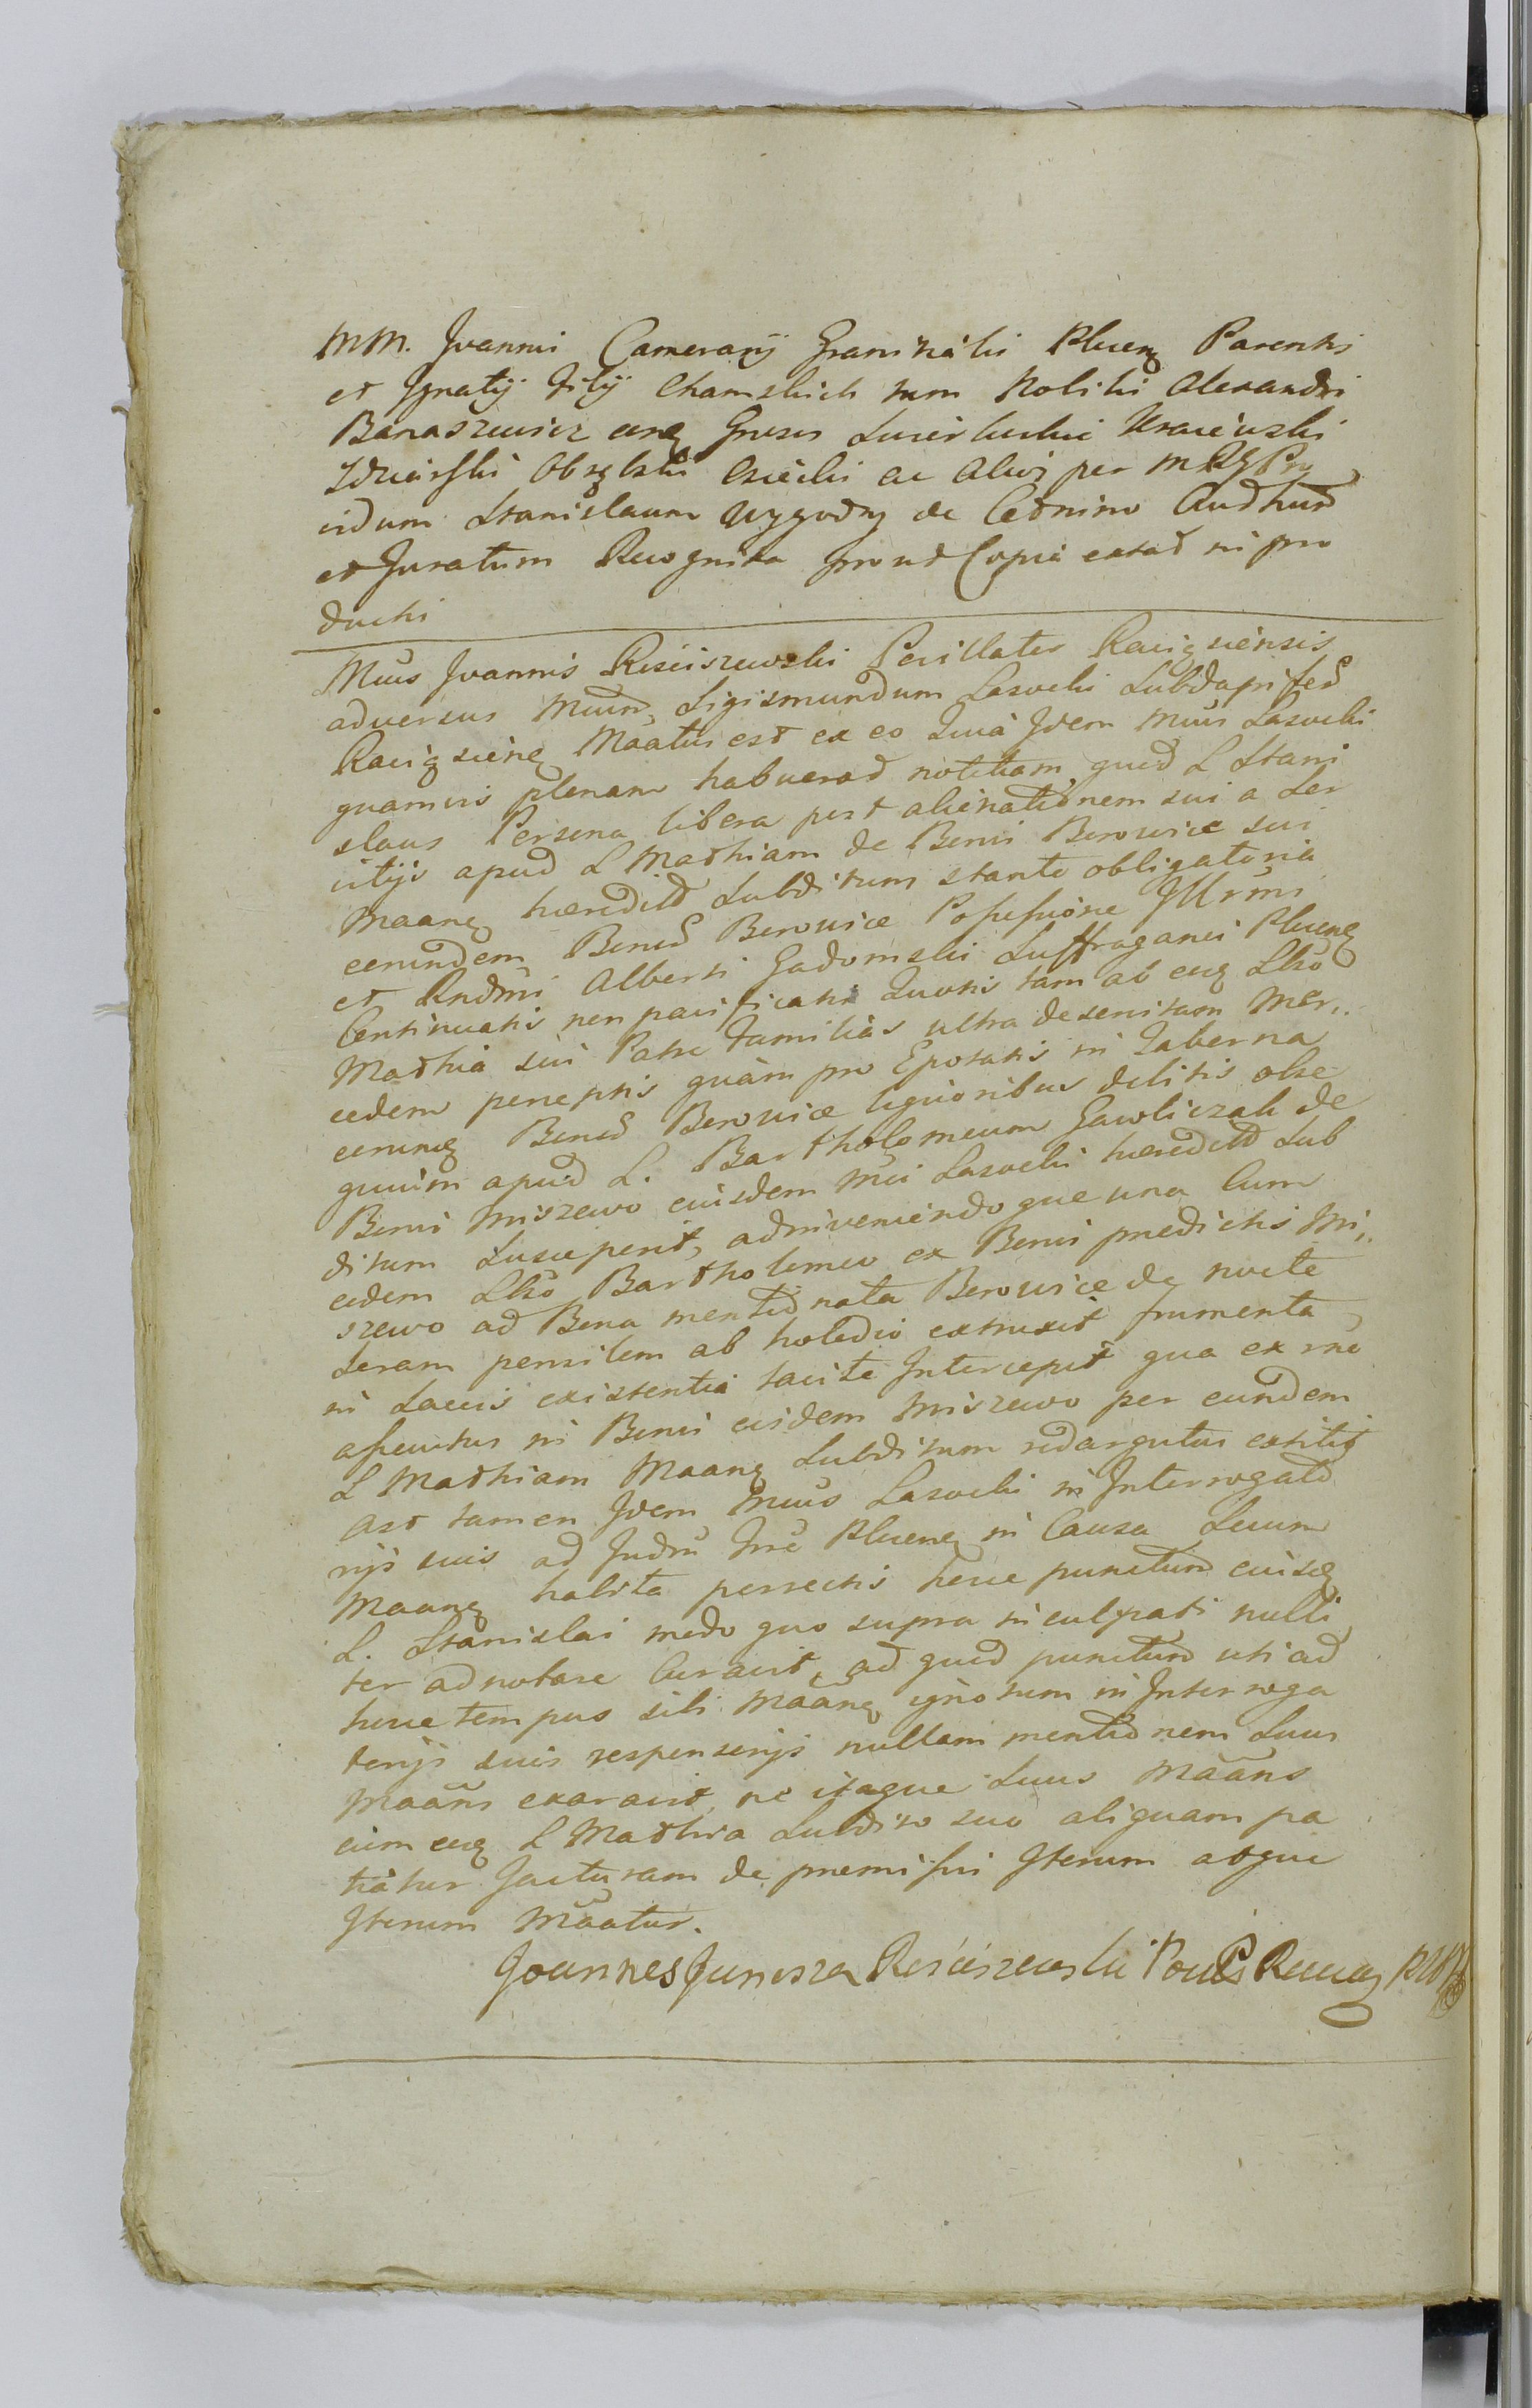 MM. Joannis Camerarij Granitialis Plucen Parentis
et Ignatij Filij Chamskich tum Nobilis Alexandri
Banaszewicz
Obrębski Osiecki ac alios per
vidum Stanislaum Wygodny de Cednino
et Juratum Recognita prout Copia extat in pro
ducti
Mcus Joannis Rościszewski Pocillator Raciąsiensis
adversus Sigismundum Lasocki Subdapiferum
Raciąsien Maatus est ex eo Quia Idem Mcus Lasocki
quamvis plenam habuerat notitiam quod L Stani
slaus Persona libera post alienationem sui a Ser
vitijs apud L Mathiam de Bonis Borowice sui
Maang hæredit Subditum stante obligatoria
eorundem Bonor Borowice Possessione Illrmi
et Rndmi Alberti Gadomski Suffraganei Plucen
Continuatis non pacificatis Quotis tam ab eog
Mathia sui Patre Familias ultra deservitam Mer„
cedem perceptis quàm pro Epotatis in Taberna
eorung Bonor Borowice liquoribus debitis obse
quium apud L. Bartholomeum Gawliczak de
Bonis Miszewo eiusdem Mci Lasocki hæredit Sub
ditum Susceperit, adinveniendoque una Cum
eodem Bartholomeo ex Bonis prædictis Mi„
szewo ad Bona mentionata Borowice de nocte
Seram pensilem ab holedio extraxit frumenta
in Saccis existentia tacite Intercepit qua ex re
assecutus in Bonis eisdem Miszewo per eundem
L Mathiam Maang Subditum redargutus extitit
ast tamen Idem Mcus Lasocki in Interrogato
rijs suis ad Plucen in Causa Secum
Maang habita porrectis hocce punctum eiusg
L. Stanislai modo quo supra inculpati nulli
ter adnotare Curavit, ad quod punctum uti ad
hocce tempus sibi Maang ignotum in Interroga
torijs suis responsorijs nullam mentionem Suus
Maans exaravit, ne itaque Suus Maans
cum eog L Mathia Subdito suo aliquam pa
tiatur Jacturam de præmissis Iterum atque
Iterum Maatur.
Joannes Junosza Rościszewski